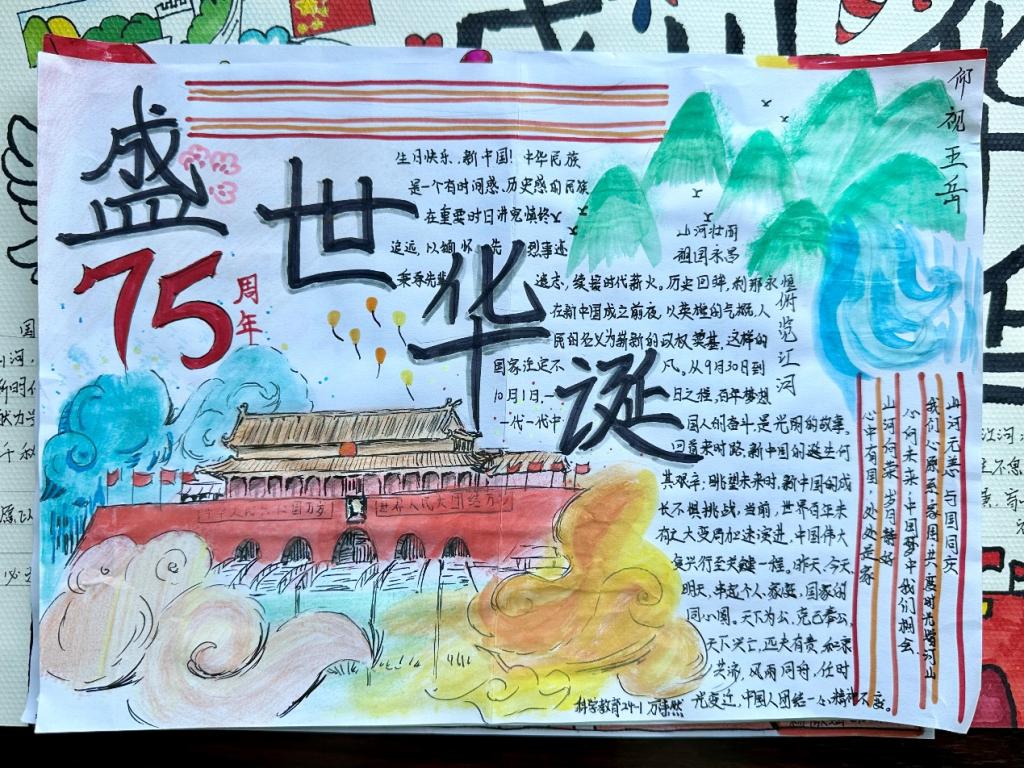 盛世华诞
75
周年
生日快乐,新中国!中华民族
是一个有时间感、历史感的民族
在重要时日讲究慎终
追远,以缅怀先烈事迹
秉承先辈遗志,续接时代薪火。历史回眸,刹那永恒
在新中国成立前夜,以英雄的气概,人
民的名义为崭新的政权奠基,这样的
国家迎定不凡。从9月30日到
10月1日,一日之程,百年梦想
一代一代中国人的奋斗是光明的故事。
回首来时路,新中国的诞生何
其艰辛,眺望未来时,新中国的成
长不惧挑战,当前,世界百年未
有之大变局加速演进,中国伟大
复兴行至关键一程。昨天、今天
明天,串起个人、家庭、国家的
同心圆。天下为公,克己奉公,
天下兴亡,匹夫有责,和衷
共济,风雨同舟,任时
光变迁,中国人团结一心精神不变。
山河壮阔
祖国永昌
仰视五岳
俯览江河
山河无恙 与国同庆
我们心愿系家国共度时光赞河山
心向未来,中国梦中我们相会
山河向荣 岁月静好
心中有国,处处是家
中华人民共和国万岁
世界人民大团结万岁
科学教育24-1